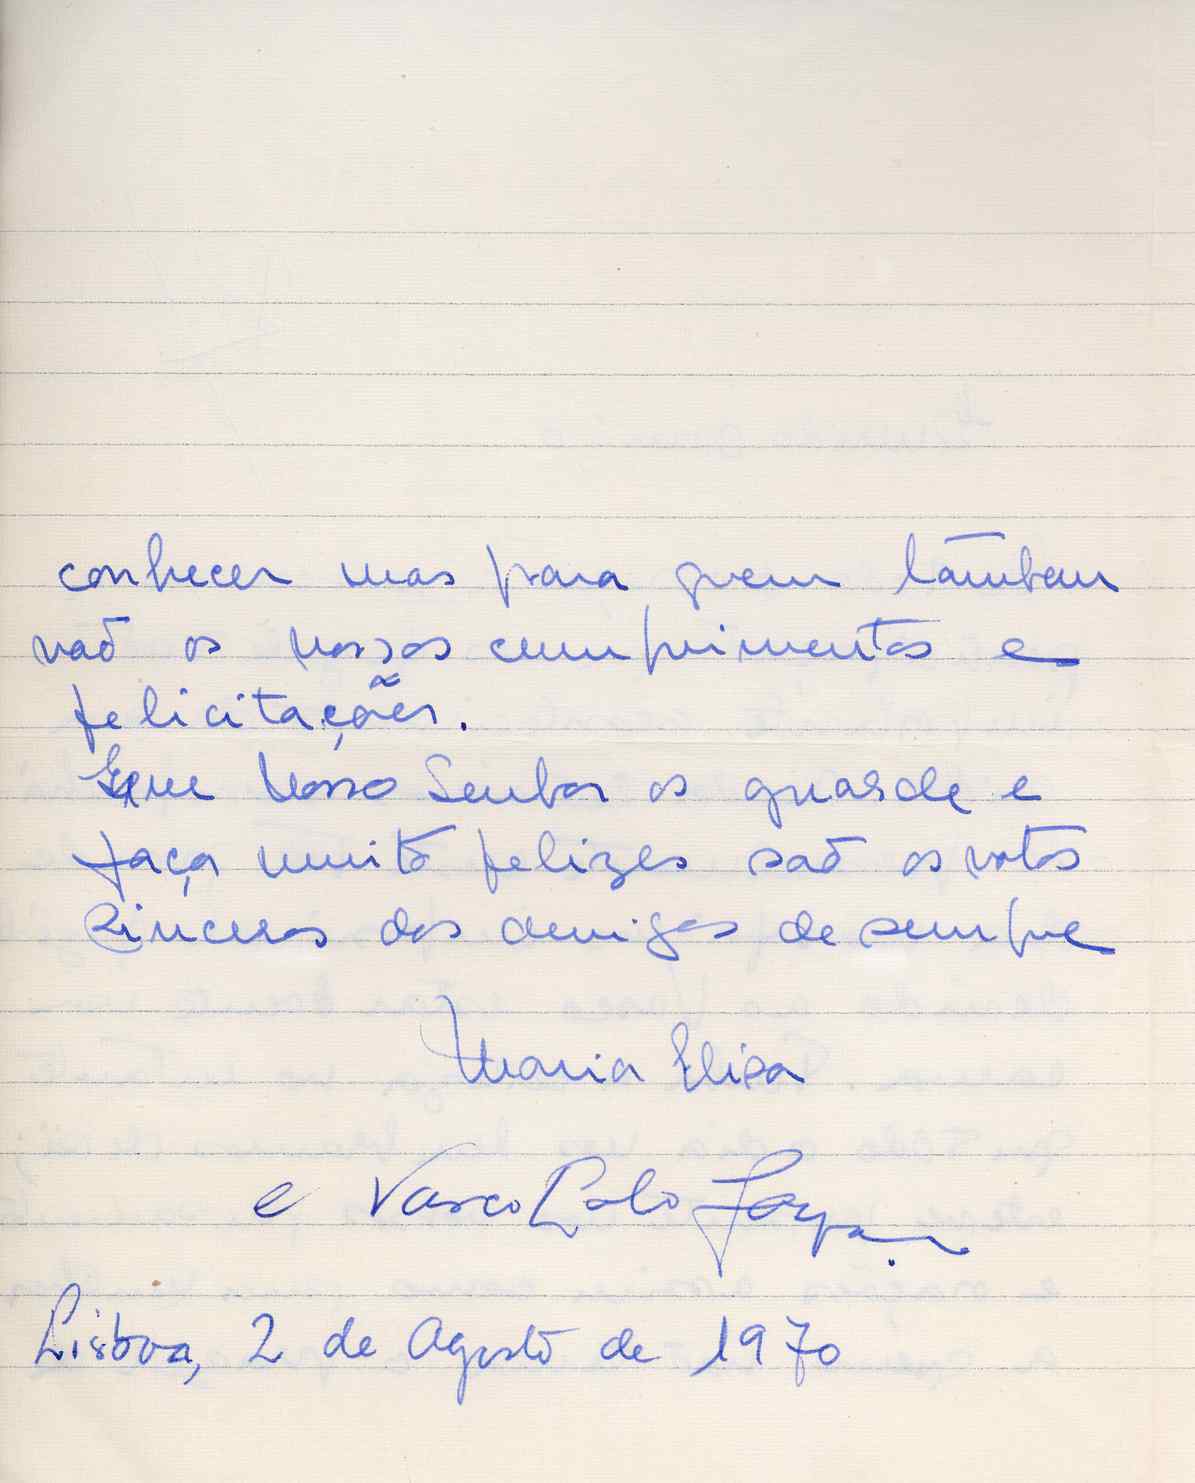 conhecer mas para quem também
vaõ os nossos cumprimentos e
felicitações.
Que Nosso Senhor os guarde e
faça muito felizes saõ os votos
sinceros dos amigos de sempre
Maria Elisa
e Vasco Lobo
Lisboa, 2 de Agosto de 1970